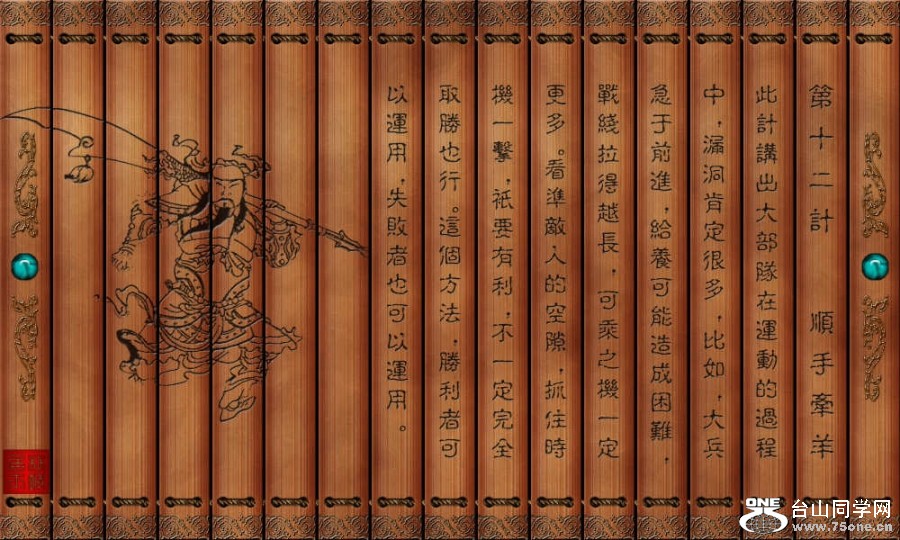 第十二計 順手牽羊
此計講出大部隊在運動的過程
中，漏洞肯定很多，比如，大兵
急于前進，給養可能造成困難，
戰綫拉得越長，可乘之機一定
更多。看準敵人的空隙，抓住時
機一擊，祇要有利，不一定完全
取勝也行。這個方法，勝利者可
以運用，失敗者也可以運用。
ONE
台山同学网
www.75one.cn